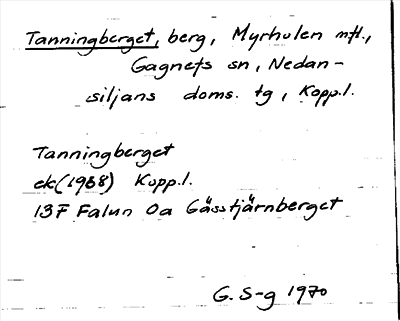 Tanningberget, berg, Myrholen mfl.,
Gagnefs sn, Nedan-
siljans doms. tg, Kopp.l.
Tanningberget
ek(1968) Kopp.l.
13F Falun 0a Gässtjärnberget
G. S-g 1970